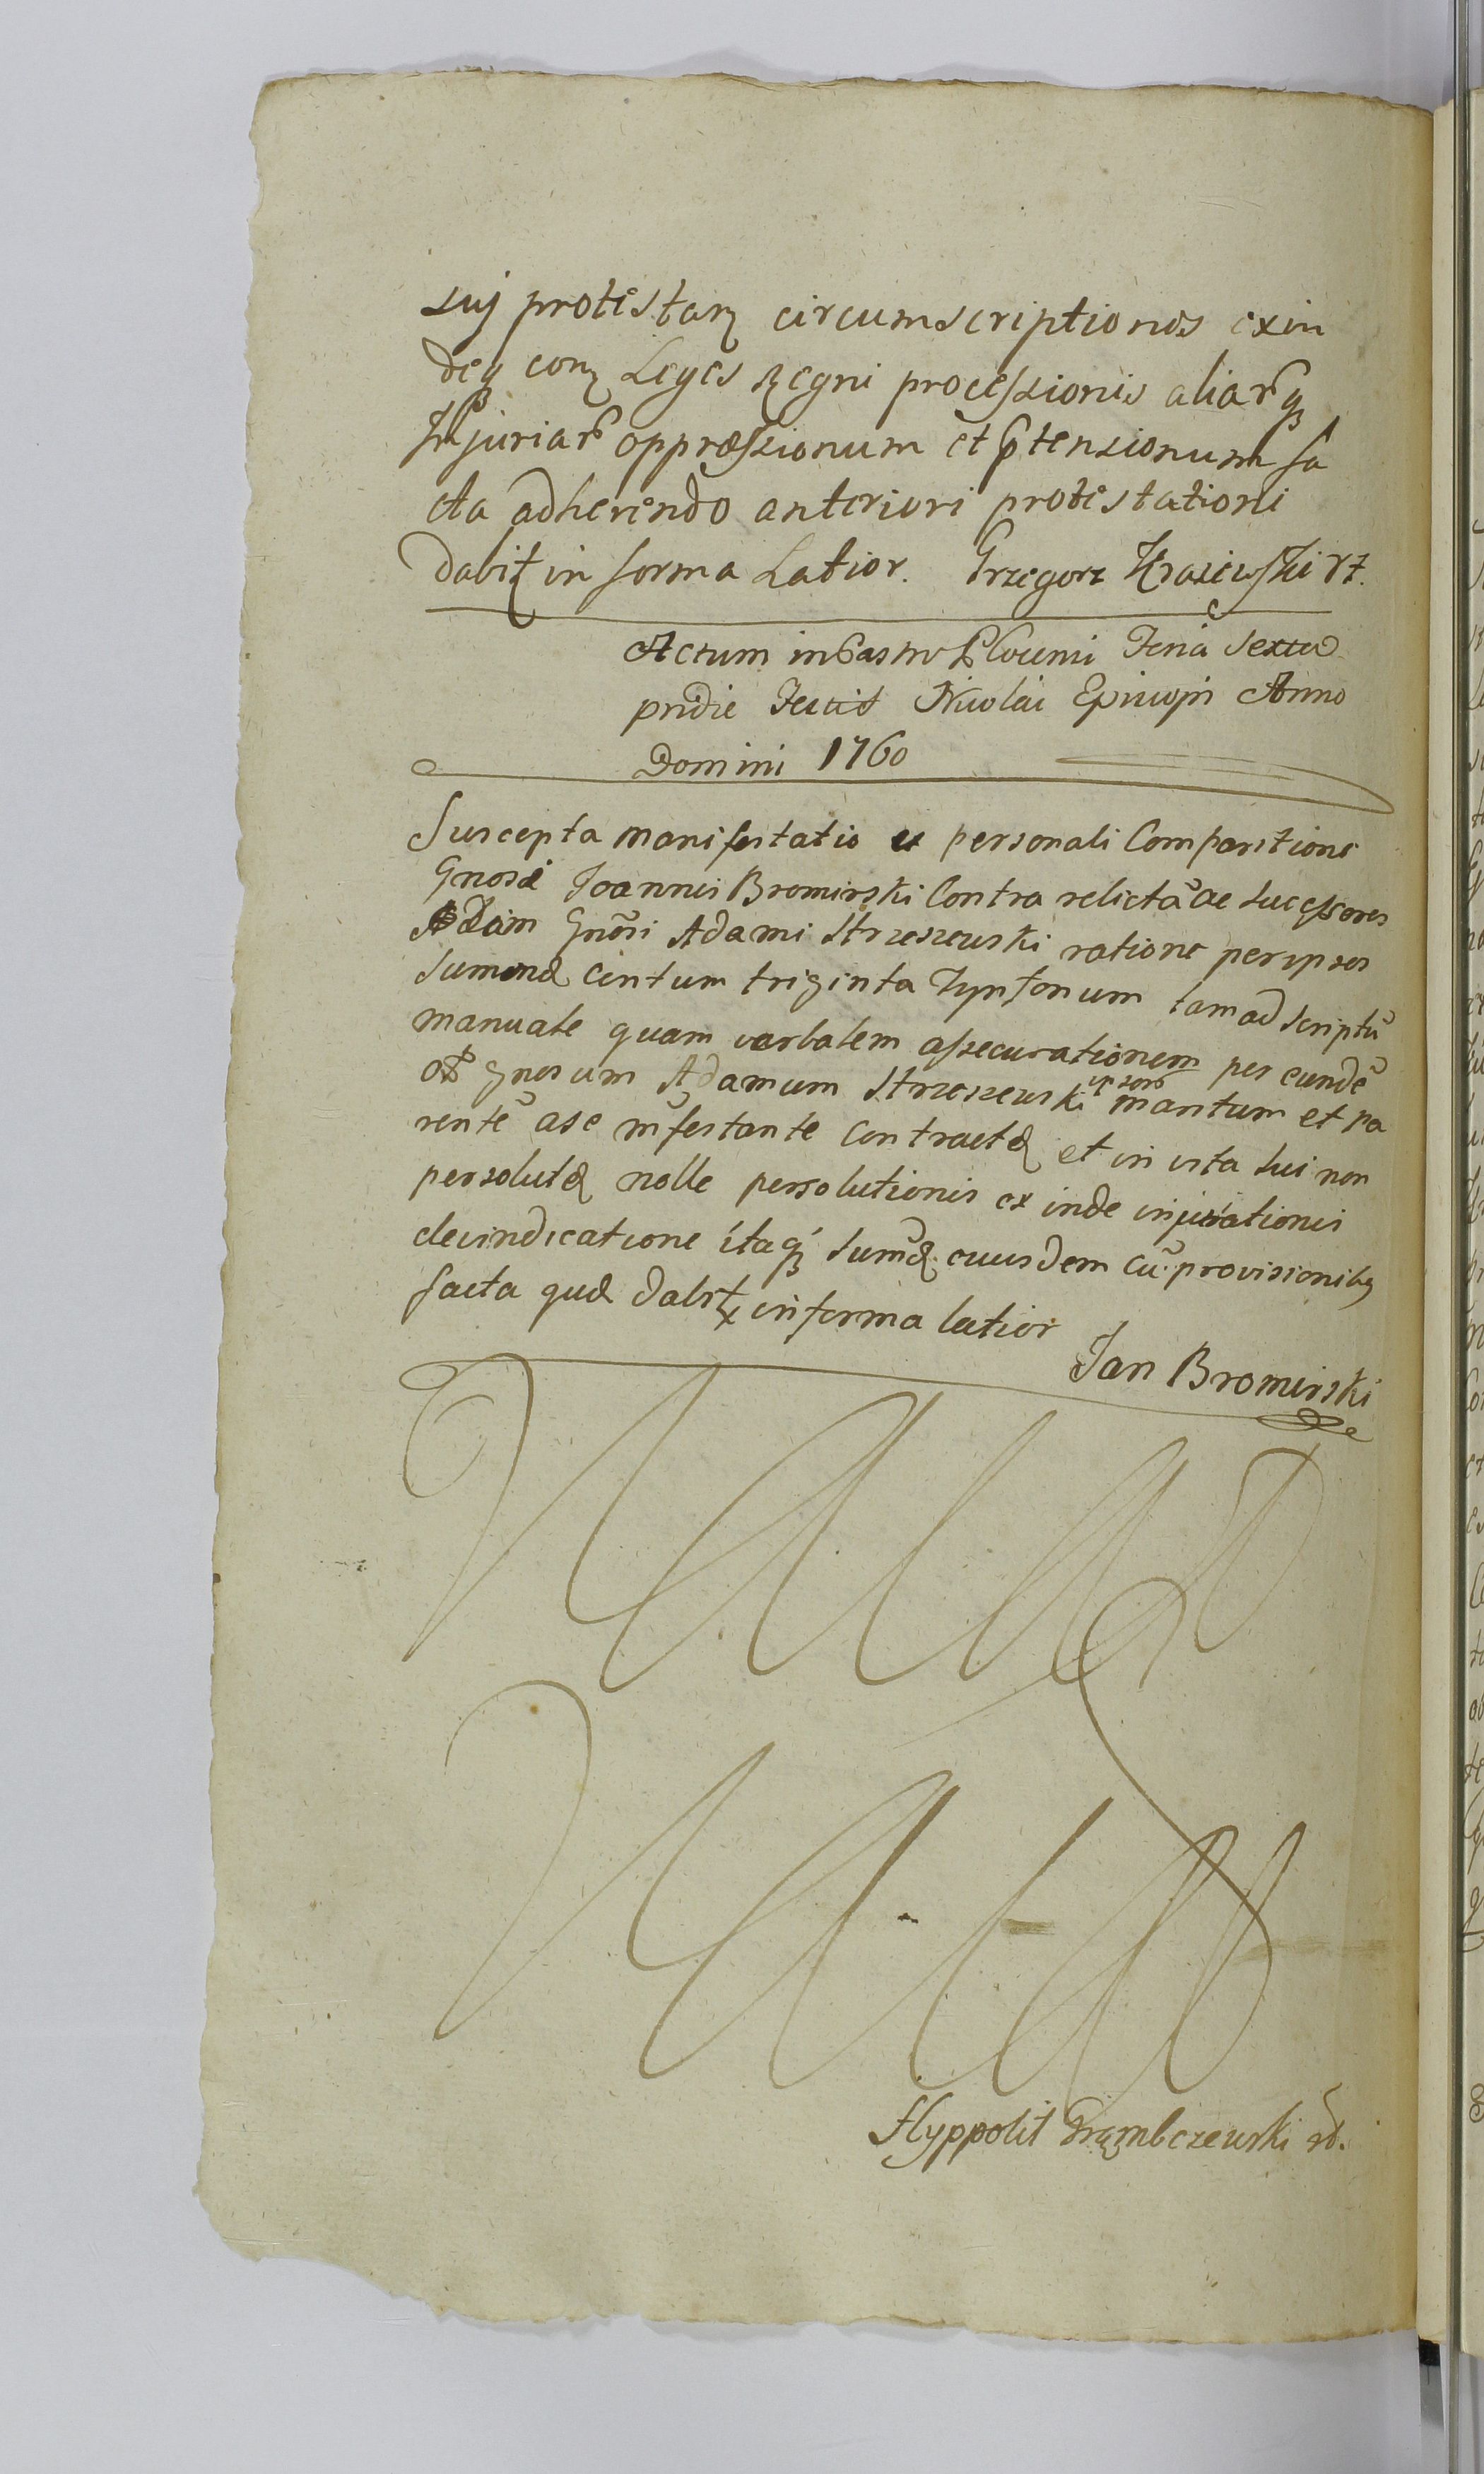 suj protestan circumscriptionos exin
deq con Leges Regni processionis aliarq
Injuriar oppressionum et ptensionum fa
cta adherendo anteriori protestationi
Dabit in forma Latior. Grzegorz Krasiewski
Actum in Castro Plocensi Feria Sexta
pridie Festi Nicolai Episcopi Anno
Domini 1760
Suscepta manifestatio ex personali Comparitione
Gnosi Joannis Bromirski Contra relictā ac successores
olim Gnōsi Adami Strzeszewski ratione per ipsos
summæ Centum triginta Tynfonum tam ad scriptū
manuale quam verbalem assecurationem per eundē
olim gnosum Adamum Strzeszewski ipsorū maritum et pa
rentē a se mfestante contractæ et in vita sui non
persolutæ nolle persolutionis ex inde injuriationis
devindicatione itaq sumæ eiusdem cū provisionibq
facta quæ dabit in forma latior
Jan Bromirski
Hyppolit Grąmbczewski